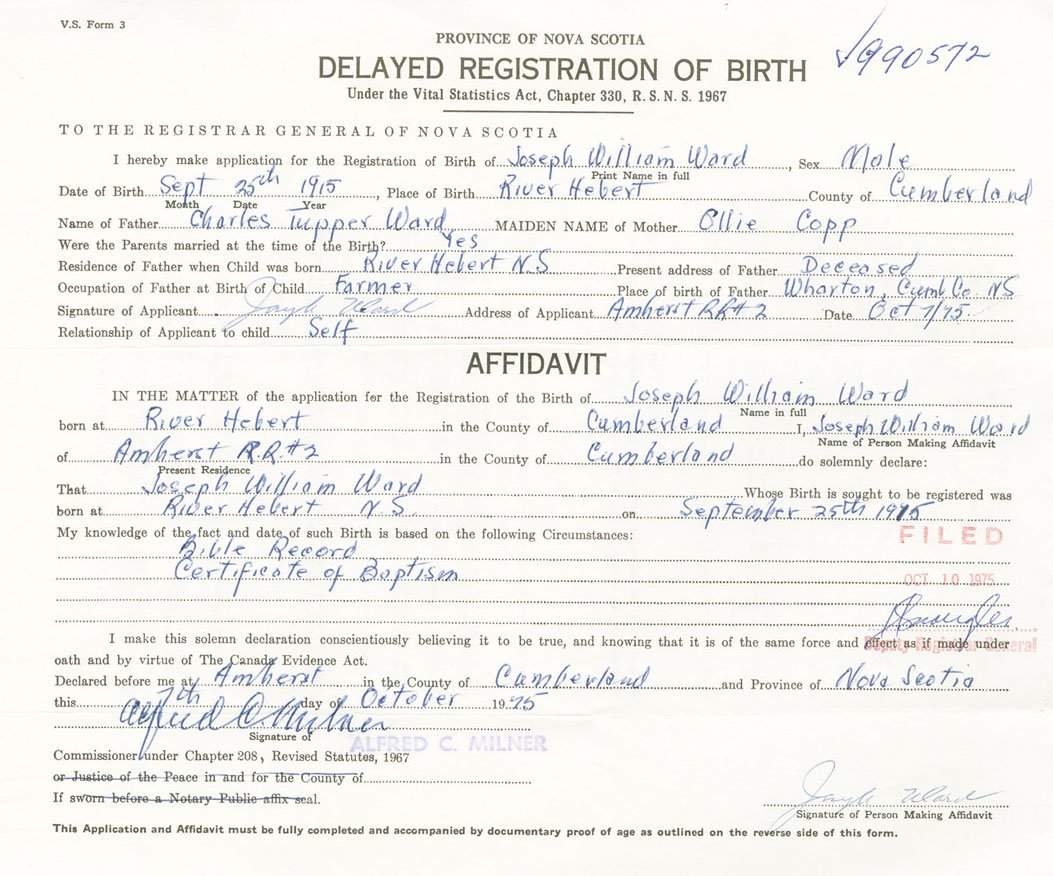 V.S. Form 3
PROVINCE OF NOVA SCOTIA
990572
DELAYED REGISTRATION OF BIRTH
Under the Vital Statistics Act, Chapter 330, R.S.N.S. 1967
TO THE REGISTRAR GENERAL OF NOVA SCOTIA
I hereby make application for the Registration of Birth of Joseph William Ward, Sex Male
Print Name in full
Date of Birth Sept 25th 1915, Place of Birth River Hebert County of Cumberland
Month Date Year
Name of Father Charles Tupper Ward MAIDEN NAME of Mother Ollie Copp
Were the Parents married at the time of the Birth? Yes
Residence of Father when Child was born River Hebert N.S Present address of Father Deceased
Occupation of Father at Birth of Child Farmer Place of birth of Father Wharton, Cumb Co. NS
Signature of Applicant Ward Address of Applicant Amherst RR#2 Date Oct 7/75
Relationship of Applicant to child Self
AFFIDAVIT
IN THE MATTER of the application for the Registration of the Birth of Joseph William Ward
Name in full
born at River Hebert in the County of Cumberland I, Joseph William Ward
Name of Person Making Affidavit
of Amherst R.R.#2 in the County of Cumberland do solemnly declare:
Present Residence
That Joseph William Ward Whose Birth is sought to be registered was
born at River Hebert N.S. on September 25th 1915
My knowledge of the fact and date of such Birth is based on the following Circumstances:
FILED
Bible Record
Certificate of Baptism
OCT 10 1975
I make this solemn declaration conscientiously believing it to be true, and knowing that it is of the same force and effect as if made under
Deputy Registrar General
oath and by virtue of The Canada Evidence Act.
Declared before me at Amherst in the County of Cumberland and Province of Nova Scotia
this 7th day of October 1975
Alfred C Milner
Signature of
ALFRED C. MILNER
Commissioner under Chapter 208, Revised Statutes, 1967
or Justice of the Peace in and for the County of
If sworn before a Notary Public affix seal.
Ward
Signature of Person Making Affidavit
This Application and Affidavit must be fully completed and accompanied by documentary proof of age as outlined on the reverse side of this form.